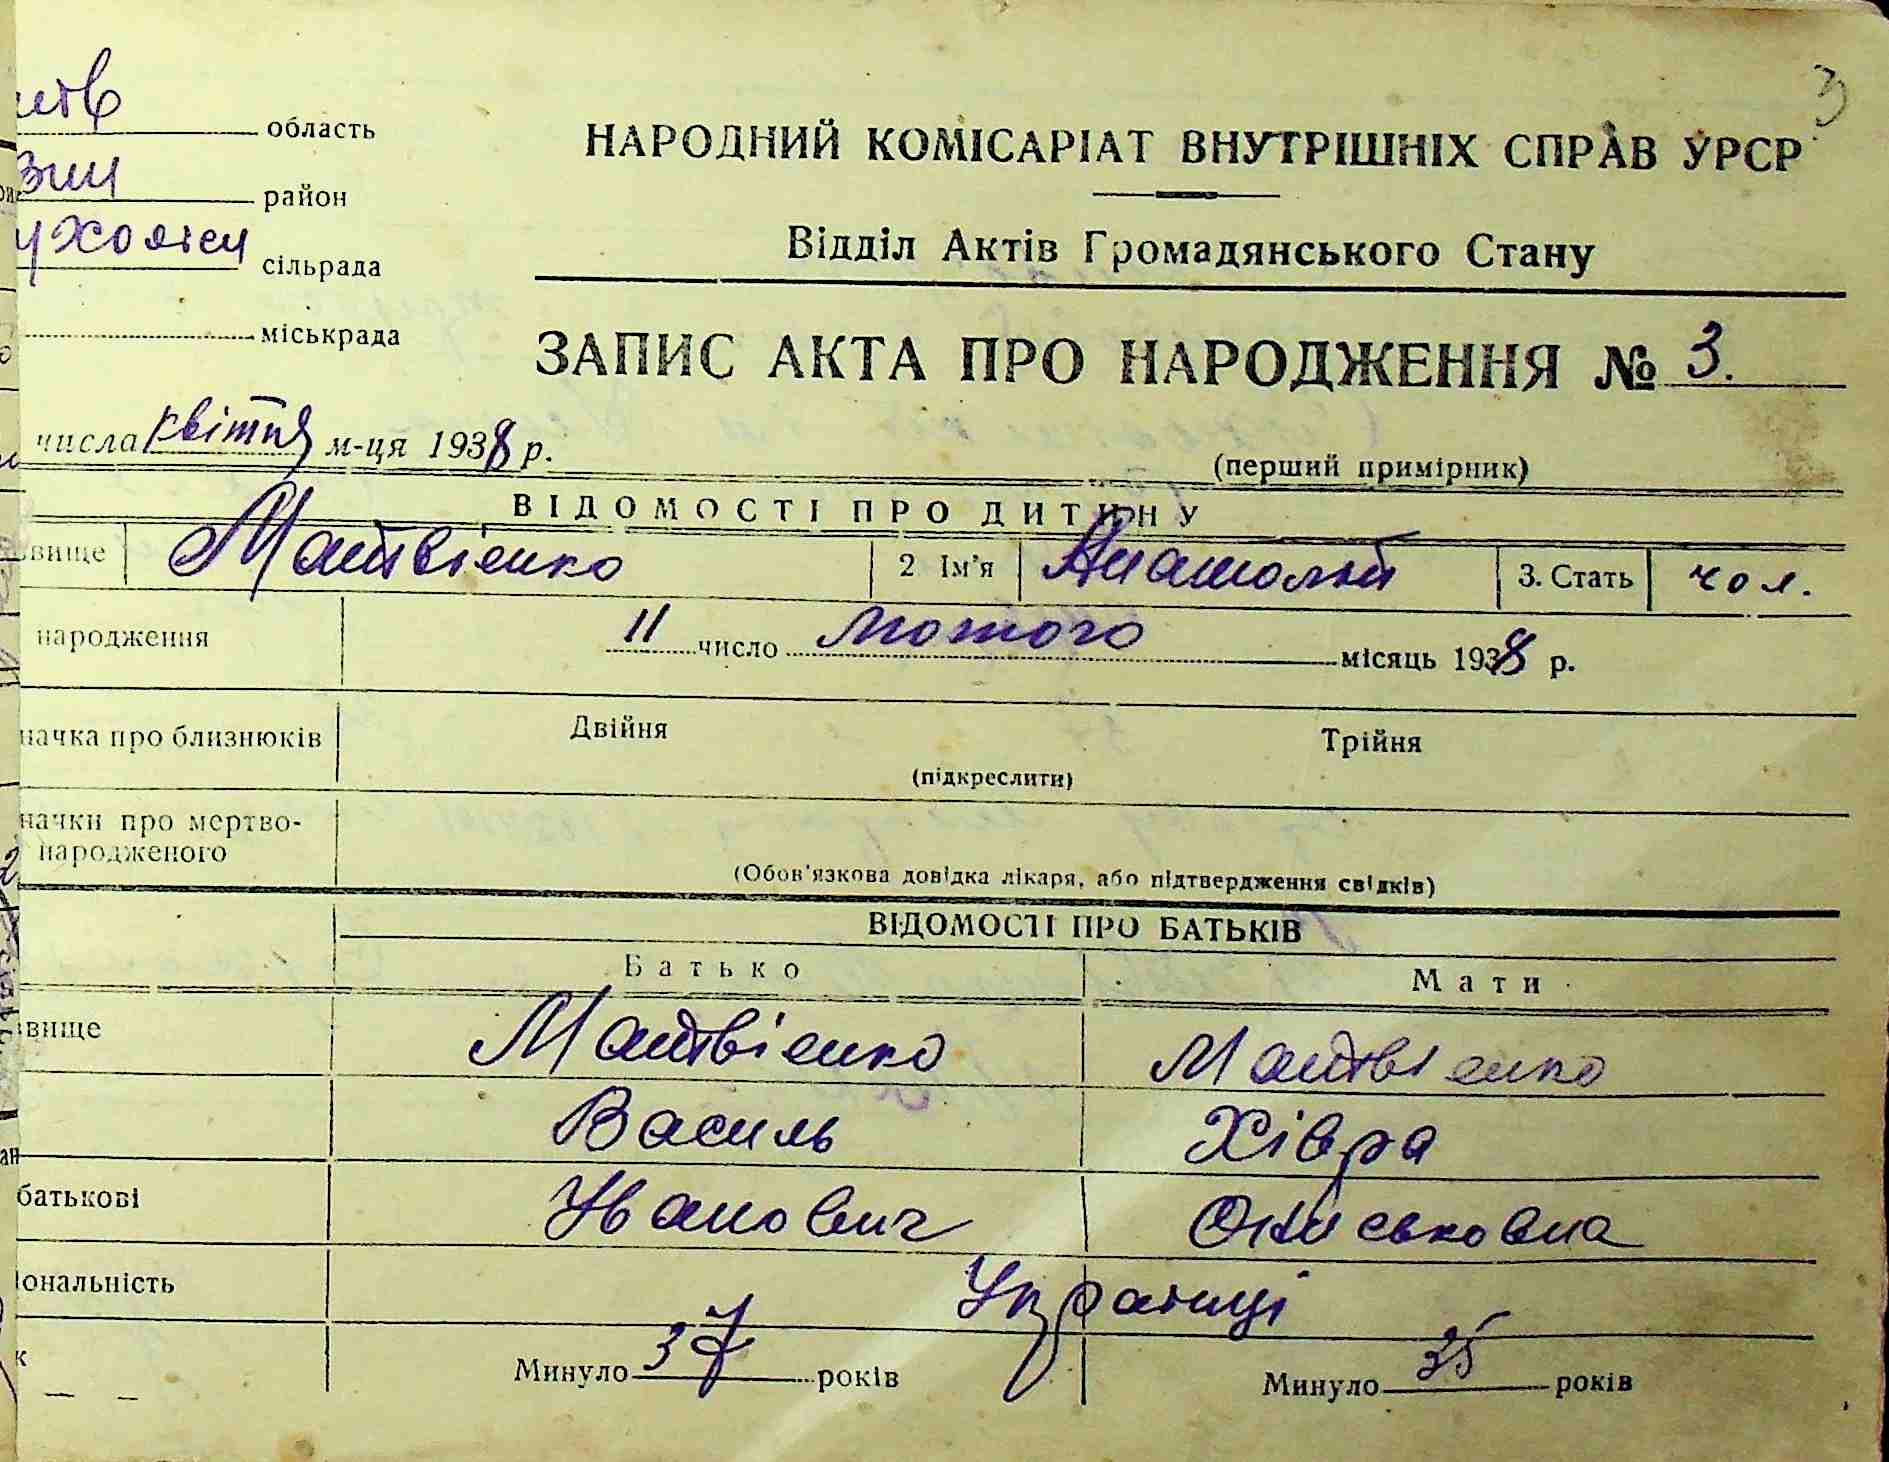 3
область
район
сільрада
міськрада
НАРОДНИЙ КОМІСАРІАТ ВНУТРІШНІХ СПРАВ УРСР
Відділ Актів Громадянського Стану
ЗАПИС АКТА ПРО НАРОДЖЕННЯ № 3.
числа квітня м-ця 1938 р.
(перший примірник)
ВІДОМОСТІ ПРО ДИТИНУ
вище Матвієнко 2 Ім'я Анатолій 3. Стать чол.
народження 11 число лютого місяць 1938 р.
начка про близнюків Двійня Трійня
(підкреслити)
начки про мертво-
народженого
(Обов'язкова довідка лікаря, або підтвердження свідків)
ВІДОМОСТІ ПРО БАТЬКІВ
Батько Мати
вище Матвієнко Матвієнко
Василь Хівря
батькові Іванович Ониськовна
іональність Українці
к Минуло 37 років Минуло 35 років